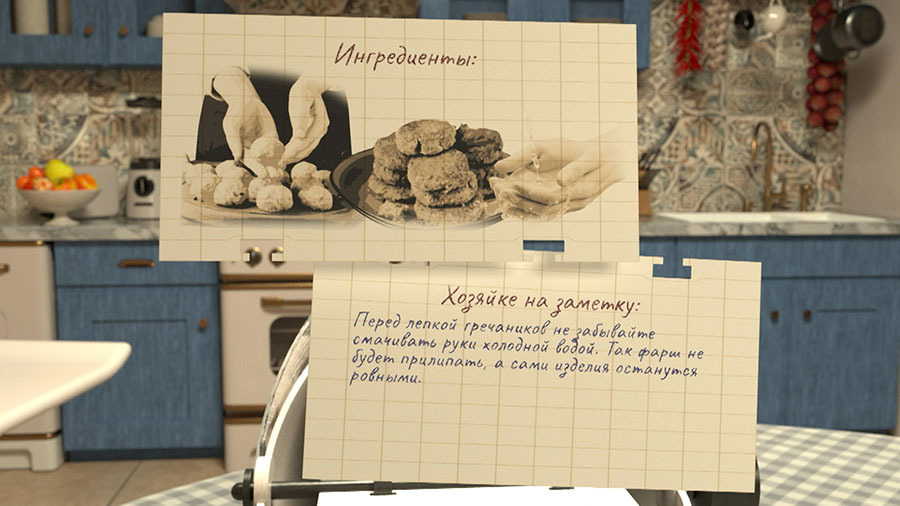 Ингредиенты:
Хозяйке на заметку:
Перед лепкой гречаников не забывайте
смачивать руки холодной водой. Так фарш не
будет прилипать, а сами изделия останутся
ровными.